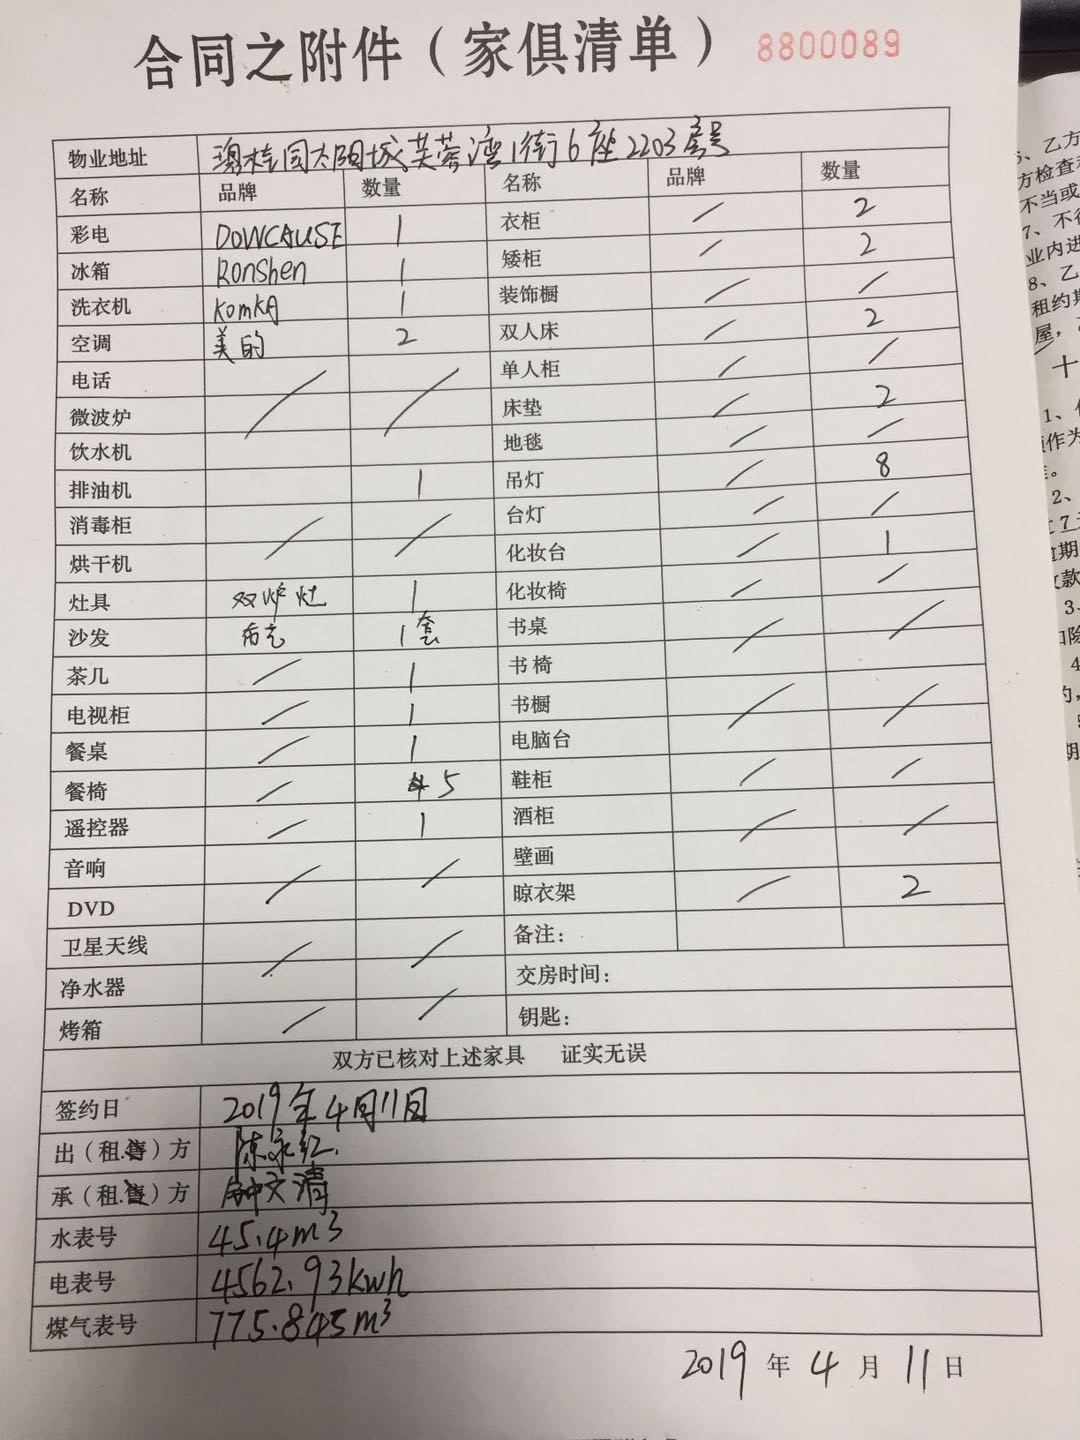 合同之附件（家俱清单） 8800089
物业地址 碧桂园太阳城芙蓉湾1街6座2203房号
名称 品牌 数量 名称 品牌 数量
彩电 DOWCAUSE 1 衣柜 / 2
冰箱 Ronshen 1 矮柜 / 2
洗衣机 KomKA 1 装饰橱 / /
空调 美的 2 双人床 / 2
电话 / / 单人柜 / /
微波炉 床垫 / 2
饮水机 地毯 / /
排油机 1 吊灯 / 8
消毒柜 / / 台灯 / /
烘干机 化妆台 / 1
灶具 双炉灶 1 化妆椅 / /
沙发 1套 书桌 / /
茶几 / 1 书椅
电视柜 / 1 书橱 / /
餐桌 / 1 电脑台
餐椅 / 5 鞋柜 / /
遥控器 / 1 酒柜 / /
音响 / / 壁画
DVD 晾衣架 / 2
卫星天线 / / 备注：
净水器 交房时间：
烤箱 / / 钥匙：
双方已核对上述家具 证实无误
签约日 2019年4月11日
出（租.售）方 陈永红
承（租.售）方 钟文清
水表号 45.4m³
电表号 4562.93kwh
煤气表号 775.845m³
2019年4月11日
、乙方
方检查
不当或
7、不
业内进
8、乙
租约期
屋，
十
1、
作为
。
2、
7
期
款
3、
除
4
约，
期